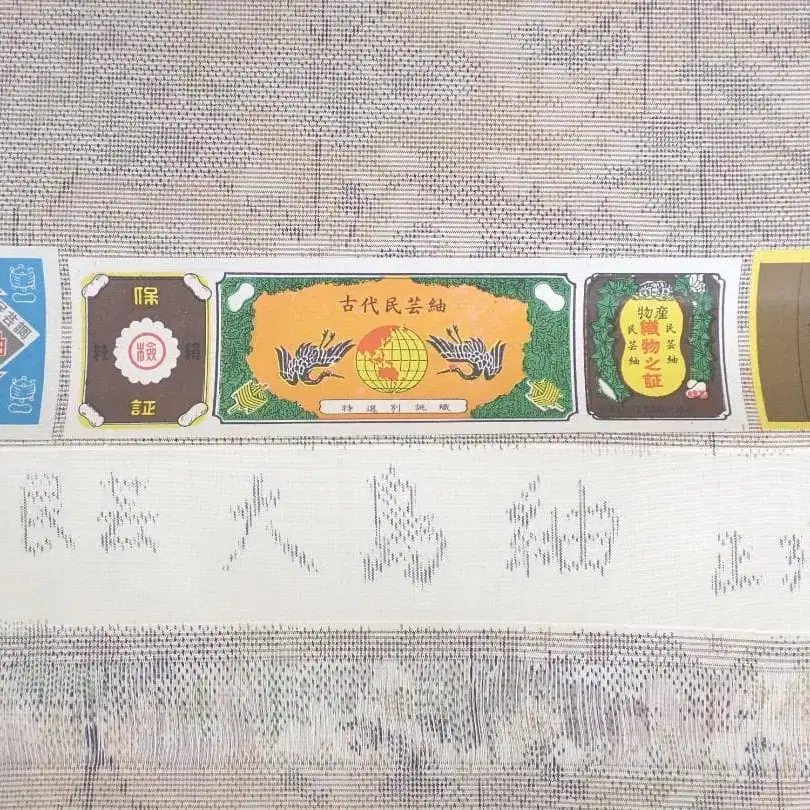 保
純 検 絹
証
古代民芸紬
特選別誂織
物産
民芸紬
織物之証
民芸紬
民芸大島紬 正